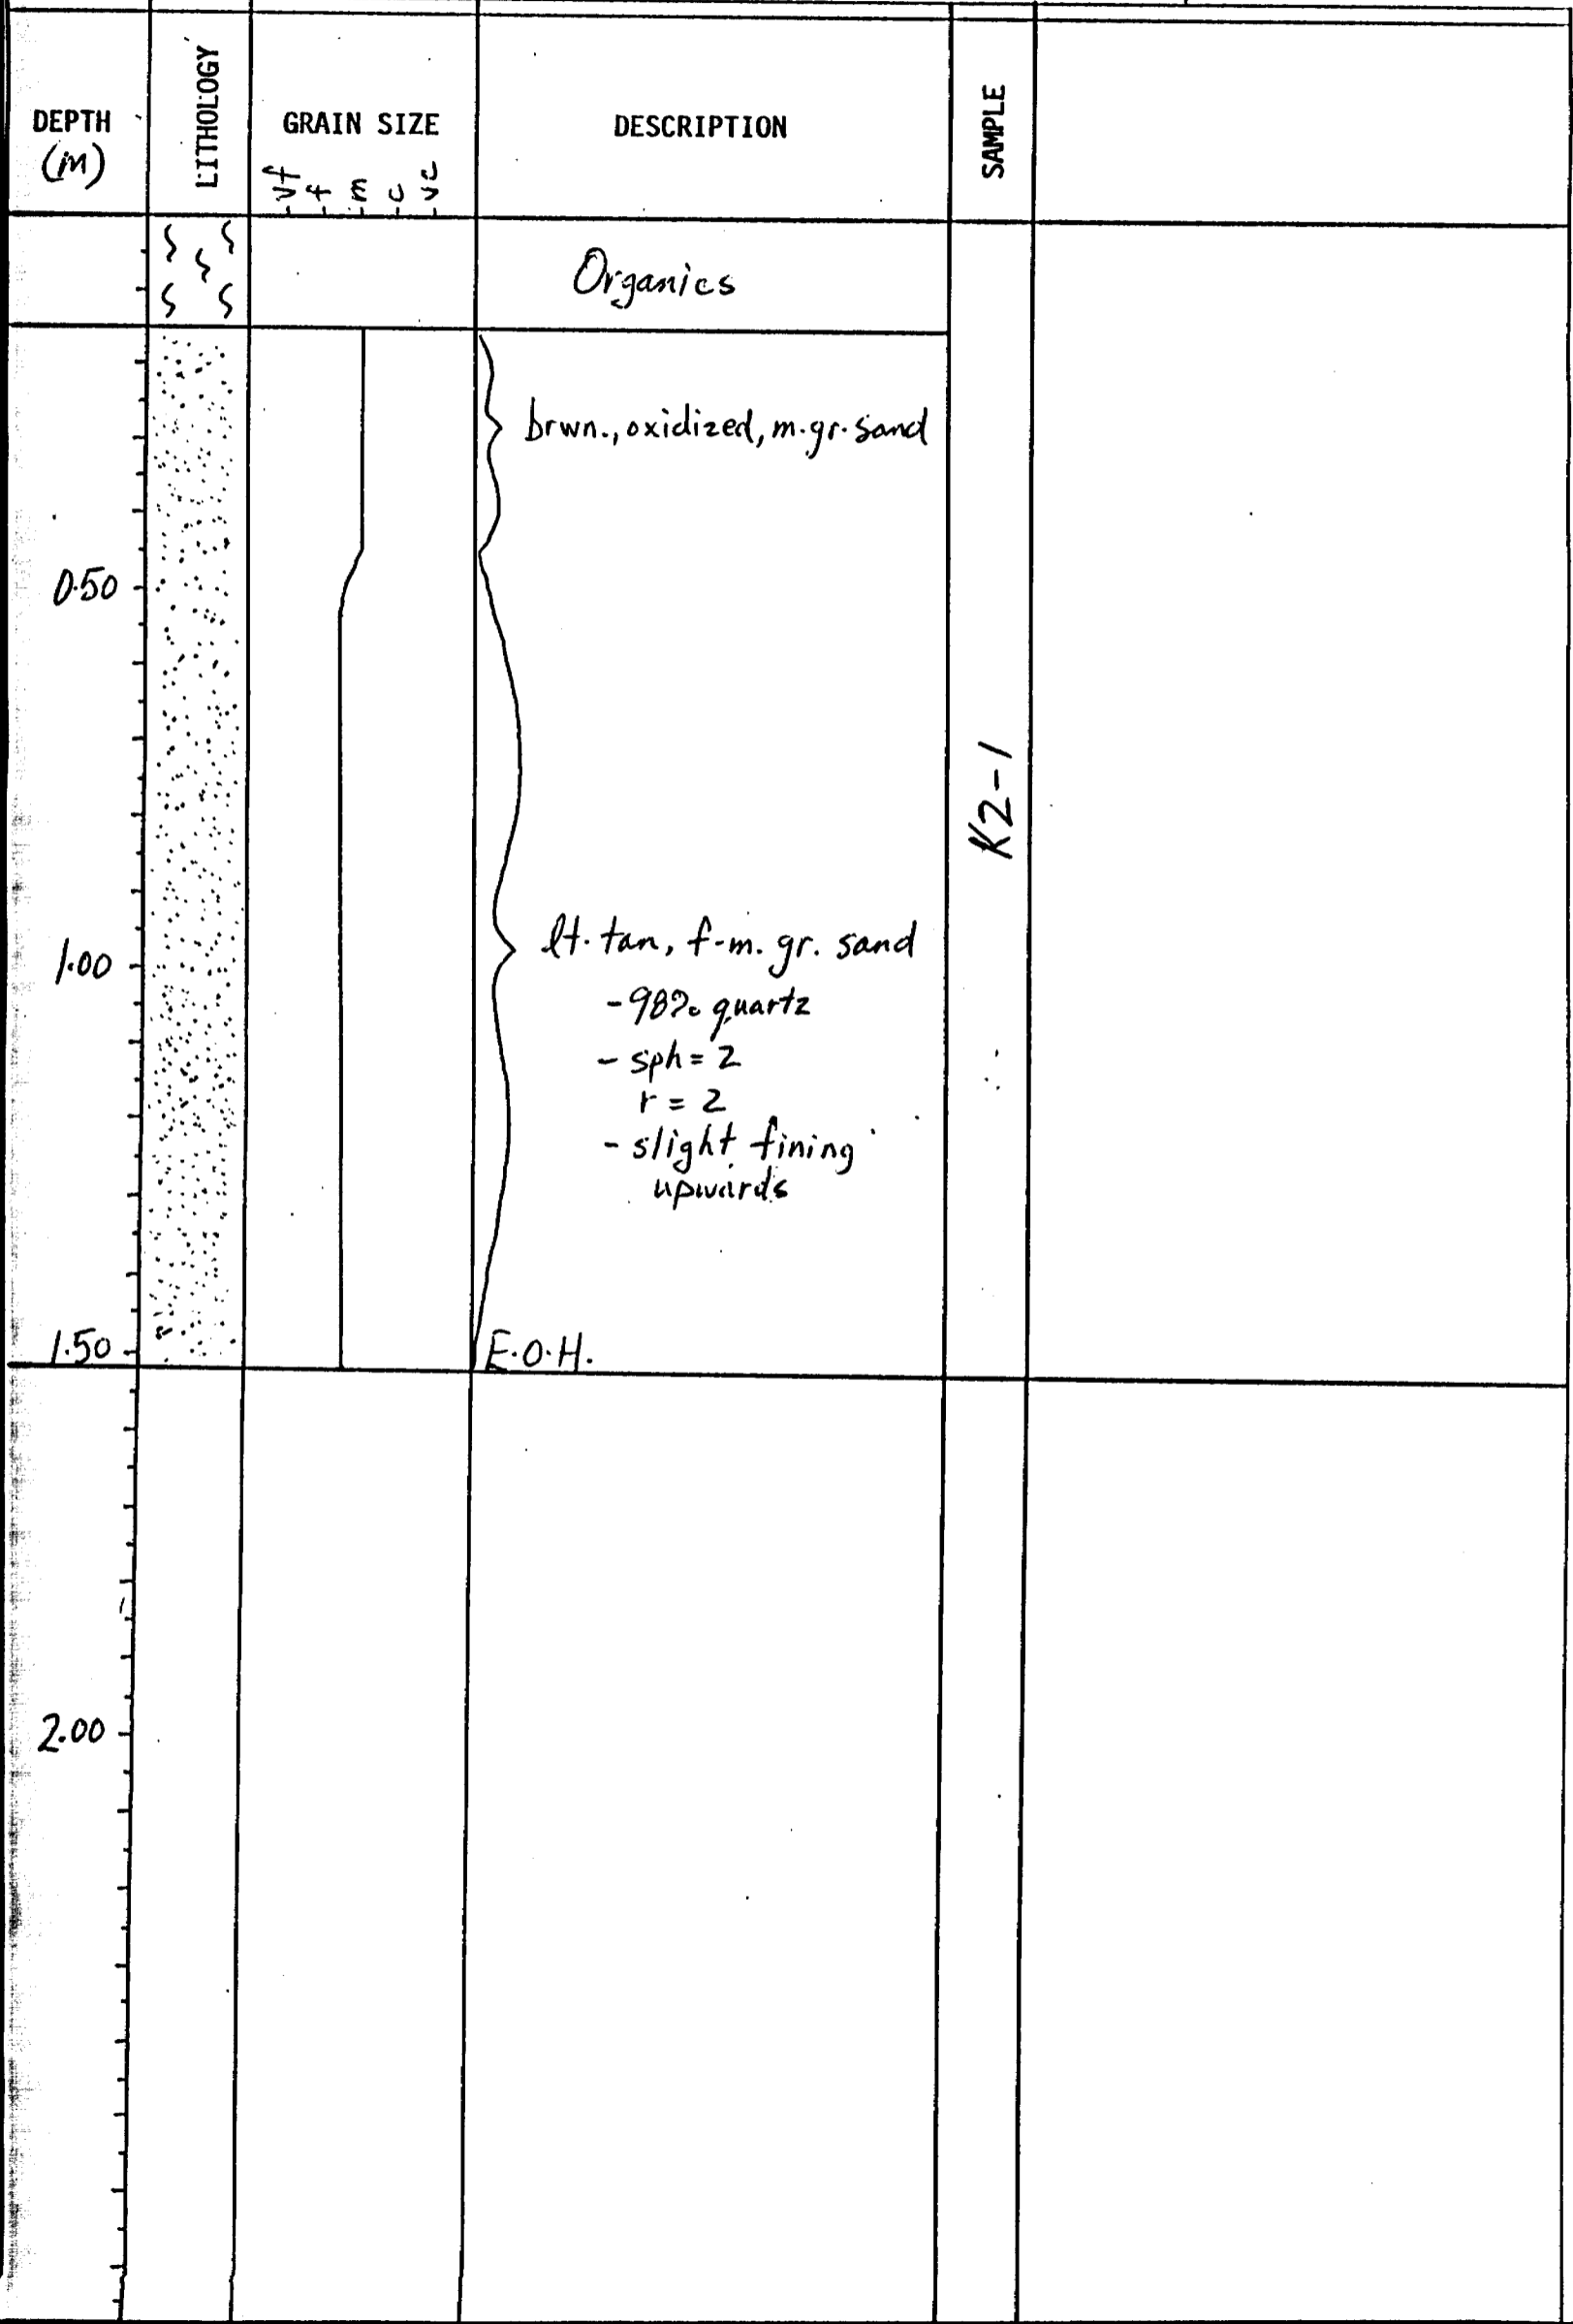 DEPTH
(m)
LITHOLOGY
GRAIN SIZE
vf f m c vc
DESCRIPTION
SAMPLE
Organics
brwn., oxidized, m.gr. sand
0.50
K2-1
lt. tan, f-m. gr. sand
1.00
- 98% quartz
- sph = 2
r = 2
- slight fining
upwards
1.50
E.O.H.
2.00